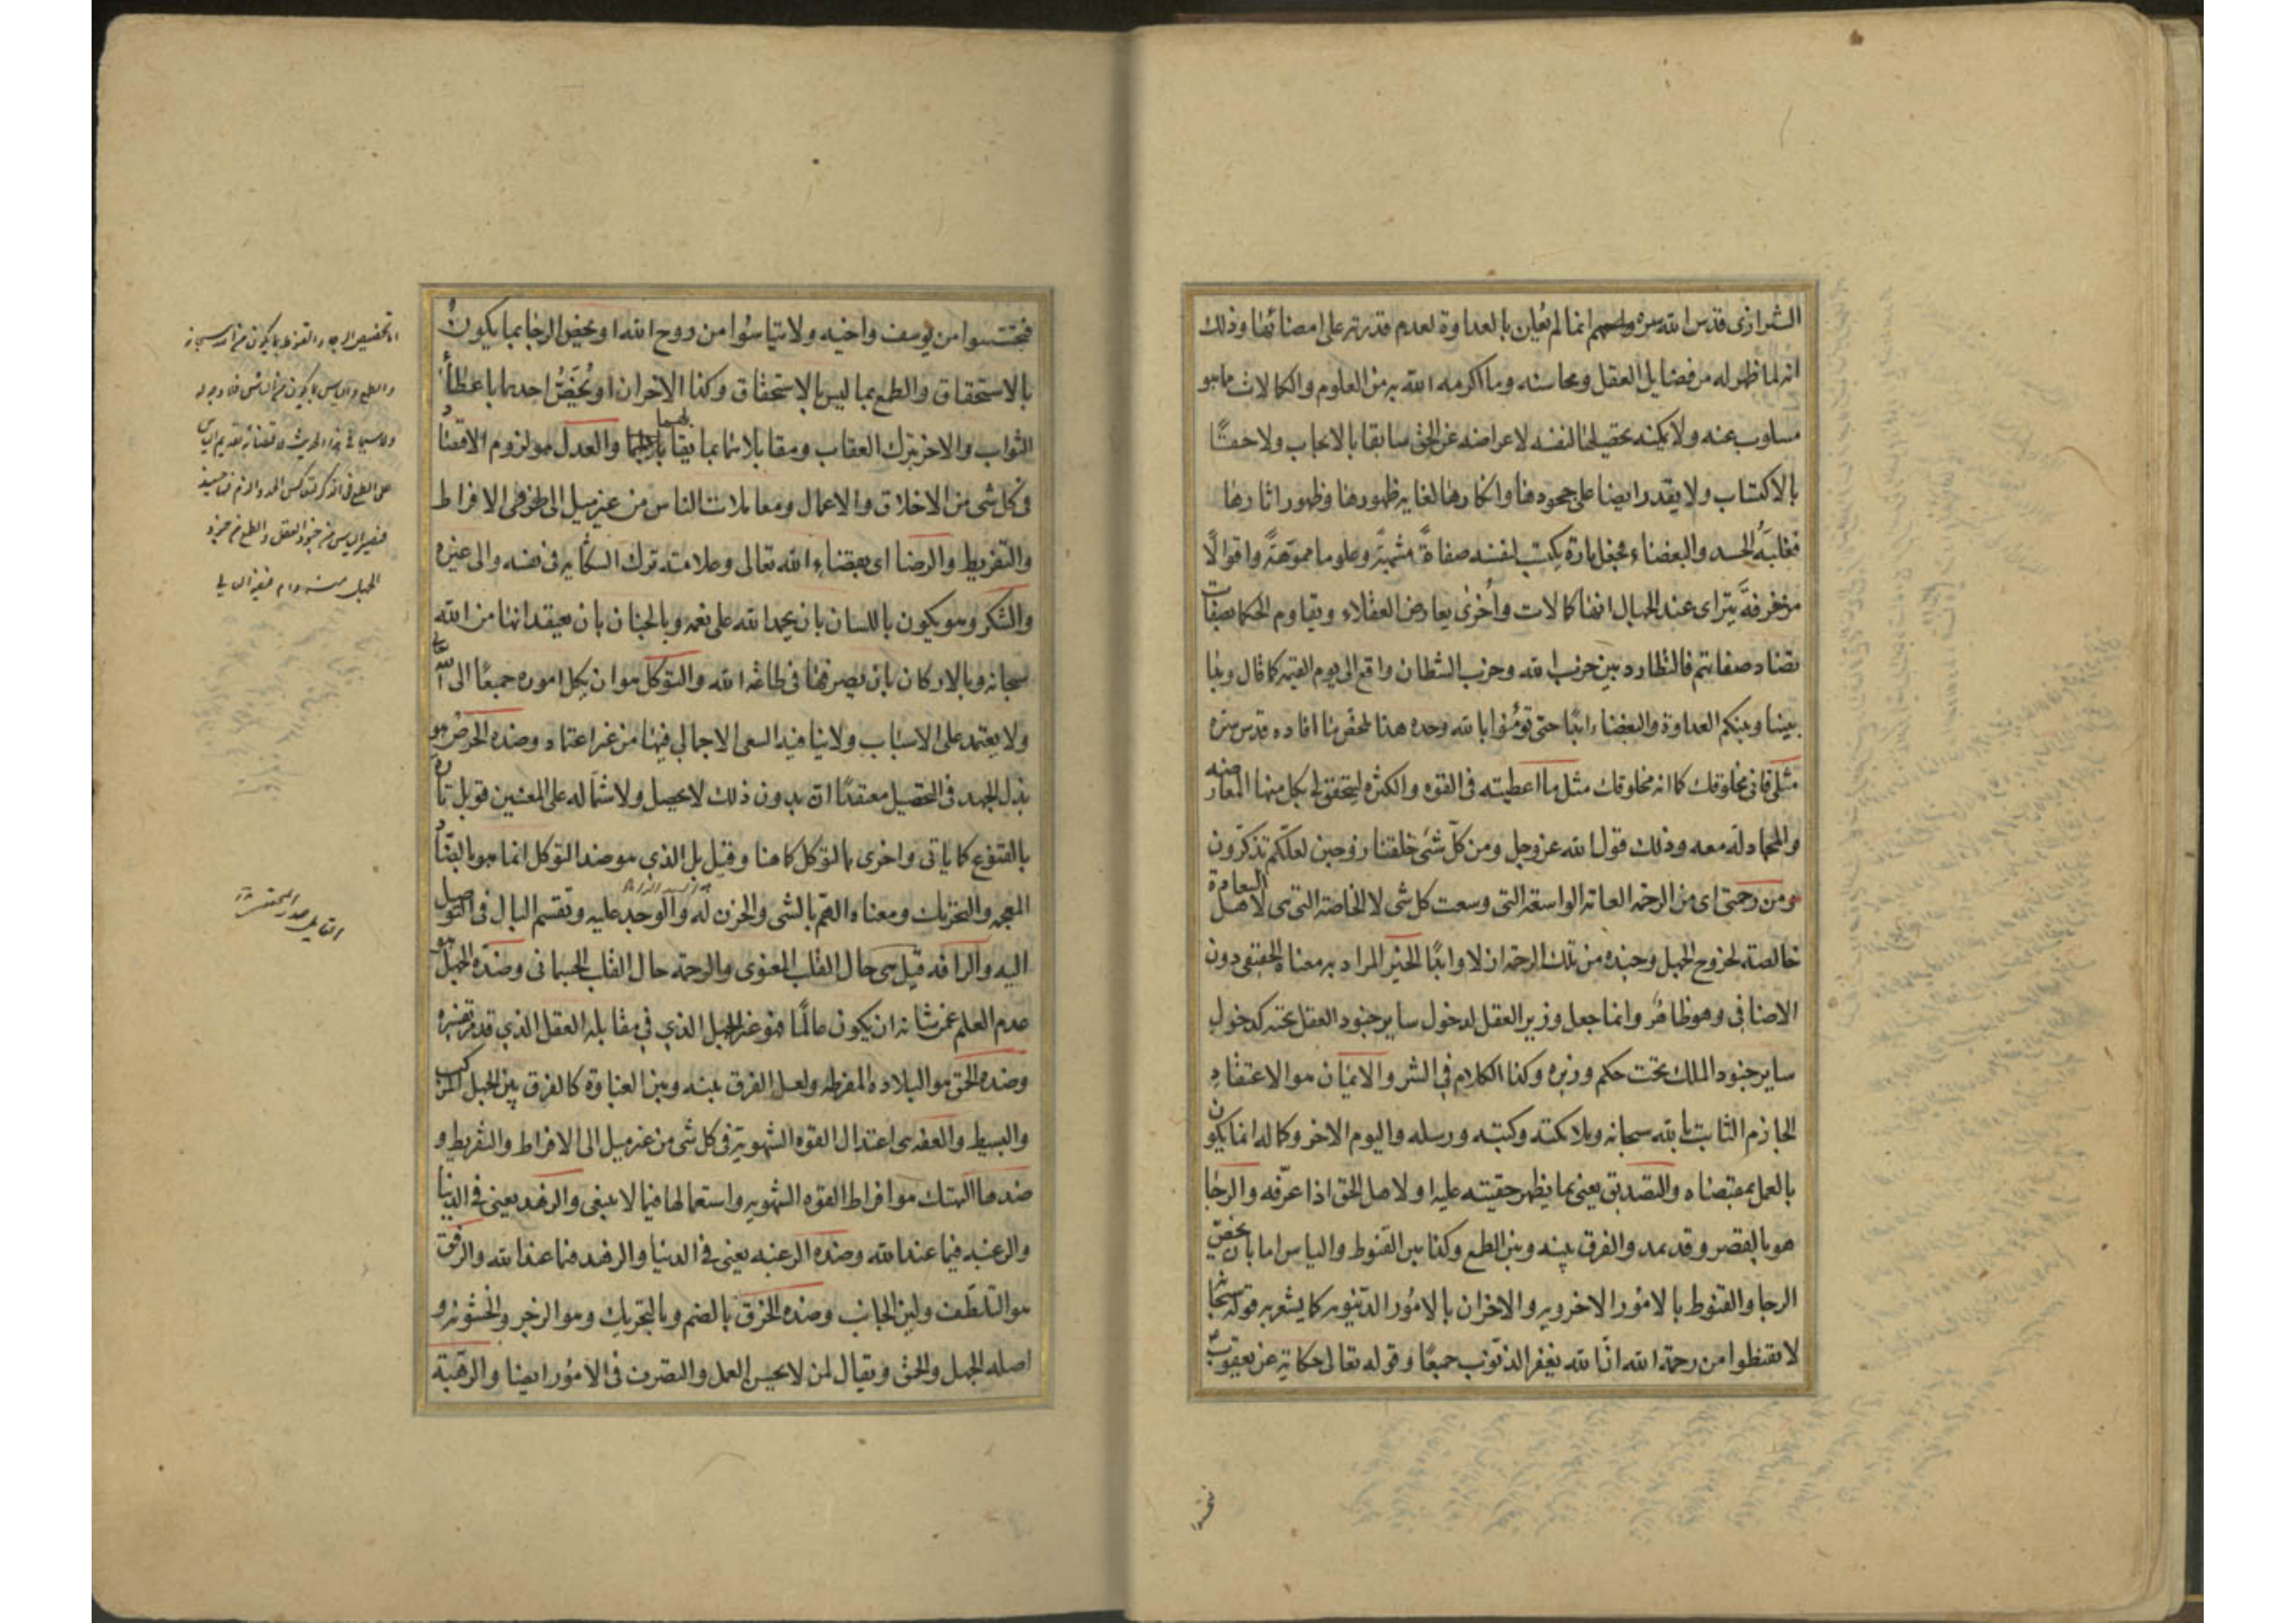 الشيرازى قدس الله سره انما لم يُعلِن بالعداوة لعدم قدرته على امضائها وذلك
انه لما ظهر له من فضايل العقل ومحاسنه وما اكرمه الله به من العلوم والكمالات ما هو
مسلوب عنه ولا يمكنه تحصيلها لنفسه لاعراضه عن الحق سابقا بالايجاب ولاحقًا
بالاكتساب ولا يقدر ايضا على جحودها وانكارها لغاية ظهورها وظهور اثارها
فغلبَهُ الحسد والبغضاء فجعل تارة يكتسب لنفسه صفاةً مشبهةً وعلوما مموّهَةً واقوالًا
مزخرفةً يتراى عند الجهال انها كمالات وأُخرٰى يعارض العقلاء ويقاوم الحكما بصفات
تضاد صفاتهم فالتطارد بين حزب الله وحزب الشطان واقع الى يوم القيمة كما قال وبدا
بيننا وبينكم العداوة والبغضاء ابدًا حتى تؤمنوا بالله وحده هذا ملخص ما افاده قدس سره
مثلى فانى مخلوقك كما انه مخلوقك مثل ما اعطيته فى القوه والكثره ليتحقق لى بكل منها المعارضه
والمجادلة معه وذلك قول الله عز وجل ومن كلّ شىء خلقنا زوجين لعلّكم تذكّرون
ومن رحمتى اى من الرحمة العامة الواسعة التى وسعت كل شى لا الخاصة التى هى لاهل السعادة
خالصة لخروج الجهل وجنده من تلك الرحمة ازلا وابدًا الخير المراد به معناه الحقيقى دون
الاضافى وهو ظاهر وانما جعل وزير العقل لدخول ساير جنود العقل تحته كدخول
ساير جنود الملك تحت حكم وزيره وكذا الكلام فى الشر والايمان هو الاعتقاد
الجازم الثابت بالله سبحانه وملائكته وكتبه ورسله واليوم الاخر وكماله انما يكون
بالعمل بمقتضاه والتصديق يعنى بما يظهر حقيته عليه اولا هل الحق اذا عرّفه والرجا
هو بالقصر وقد يمد والفرق بينه وبين الطمع وكذا بين القنوط والياس اما بان يخصّ
الرجا والقنوط بالامور الاخرويه والاخران بالامُور الدنيويه كما يشعر به قوله سبحانه
لا تقنطوا من رحمة الله انّ الله يغفر الذنوب جميعًا وقوله تعالى حكاية عن يعقوب
فتحسسوا من يوسف واخيه ولا تياسُوا من روح الله او يخص الرجا بما يكون
بالاستحقاق والطمع بما ليس بالاستحقاق وكذا الاخران او يُخَصُّ احدهما باعطاء
الثواب والاخر بترك العقاب ومقابلاهما بما يقابلهما والعدل هو لزوم الاقتصاد
فى كل شى من الاخلاق والاعمال ومعاملات الناس من غير ميل الى طرفى الافراط
والتفريط والرضا اى بقضاء الله تعالى وعلامته ترك الشكاية فى نفسه والى غيره
والشكر وهو يكون باللسان بان يحمد الله على نعمه وبالجنان بان يعتقد انها من الله
سبحانه وبالاركان بان يصرفها فى طاعة الله والتوكل هو ان يكل اموره جميعًا الى الله
ولا يعتمد على الاسباب ولا ينافيه السعى الاجمالى فيها من غير اعتماد وضده الحرص هو
بذل الجهد فى التحصيل معتقدًا انّ بدون ذلك لا يحصل ولاشتماله على المعنيين قوبل تارة
بالقنوع كما ياتى واخرى بالتوكل كما هنا وقيل بل الذى هو ضد التوكل انما هو بالضاد
المعجمه والتحريك ومعناه الهمّ بالشى والحزن له والوجد عليه وتقسم البال فى التوصل
اليه والرافه قيل هى حال القلب المعنوى والرحمة حال القلب الجسمانى وضدّه الجهل هو
عدم العلم عمن شانه ان يكون عالمًا فهو غير الجهل الذى فى مقابله العقل الذى قد مر تفسيره
وضده الحمق هو البلاده المفرطه ولعل الفرق بينه وبين الغباوة كالفرق بين الجهل المركب
والبسيط والعفه هى اعتدال القوه الشهوية فى كل شى من غير ميل الى الافراط والتفريط و
ضدها التهتك هو افراط القوه الشهويه واستعمالها فيما لا ينبغى والزهد يعنى فى الدنيا
والرغبه فيما عند الله وضده الرغبه يعنى فى الدنيا والزهد فيما عند الله والرفق
هو التلطّف ولين الجانب وضده الخرق بالضم وبالتحريك وهو الزجر والخشونه و
اصله الجهل والحمق ويقال لمن لا يحسن العمل والتصرف فى الامور ايضا والرهبة